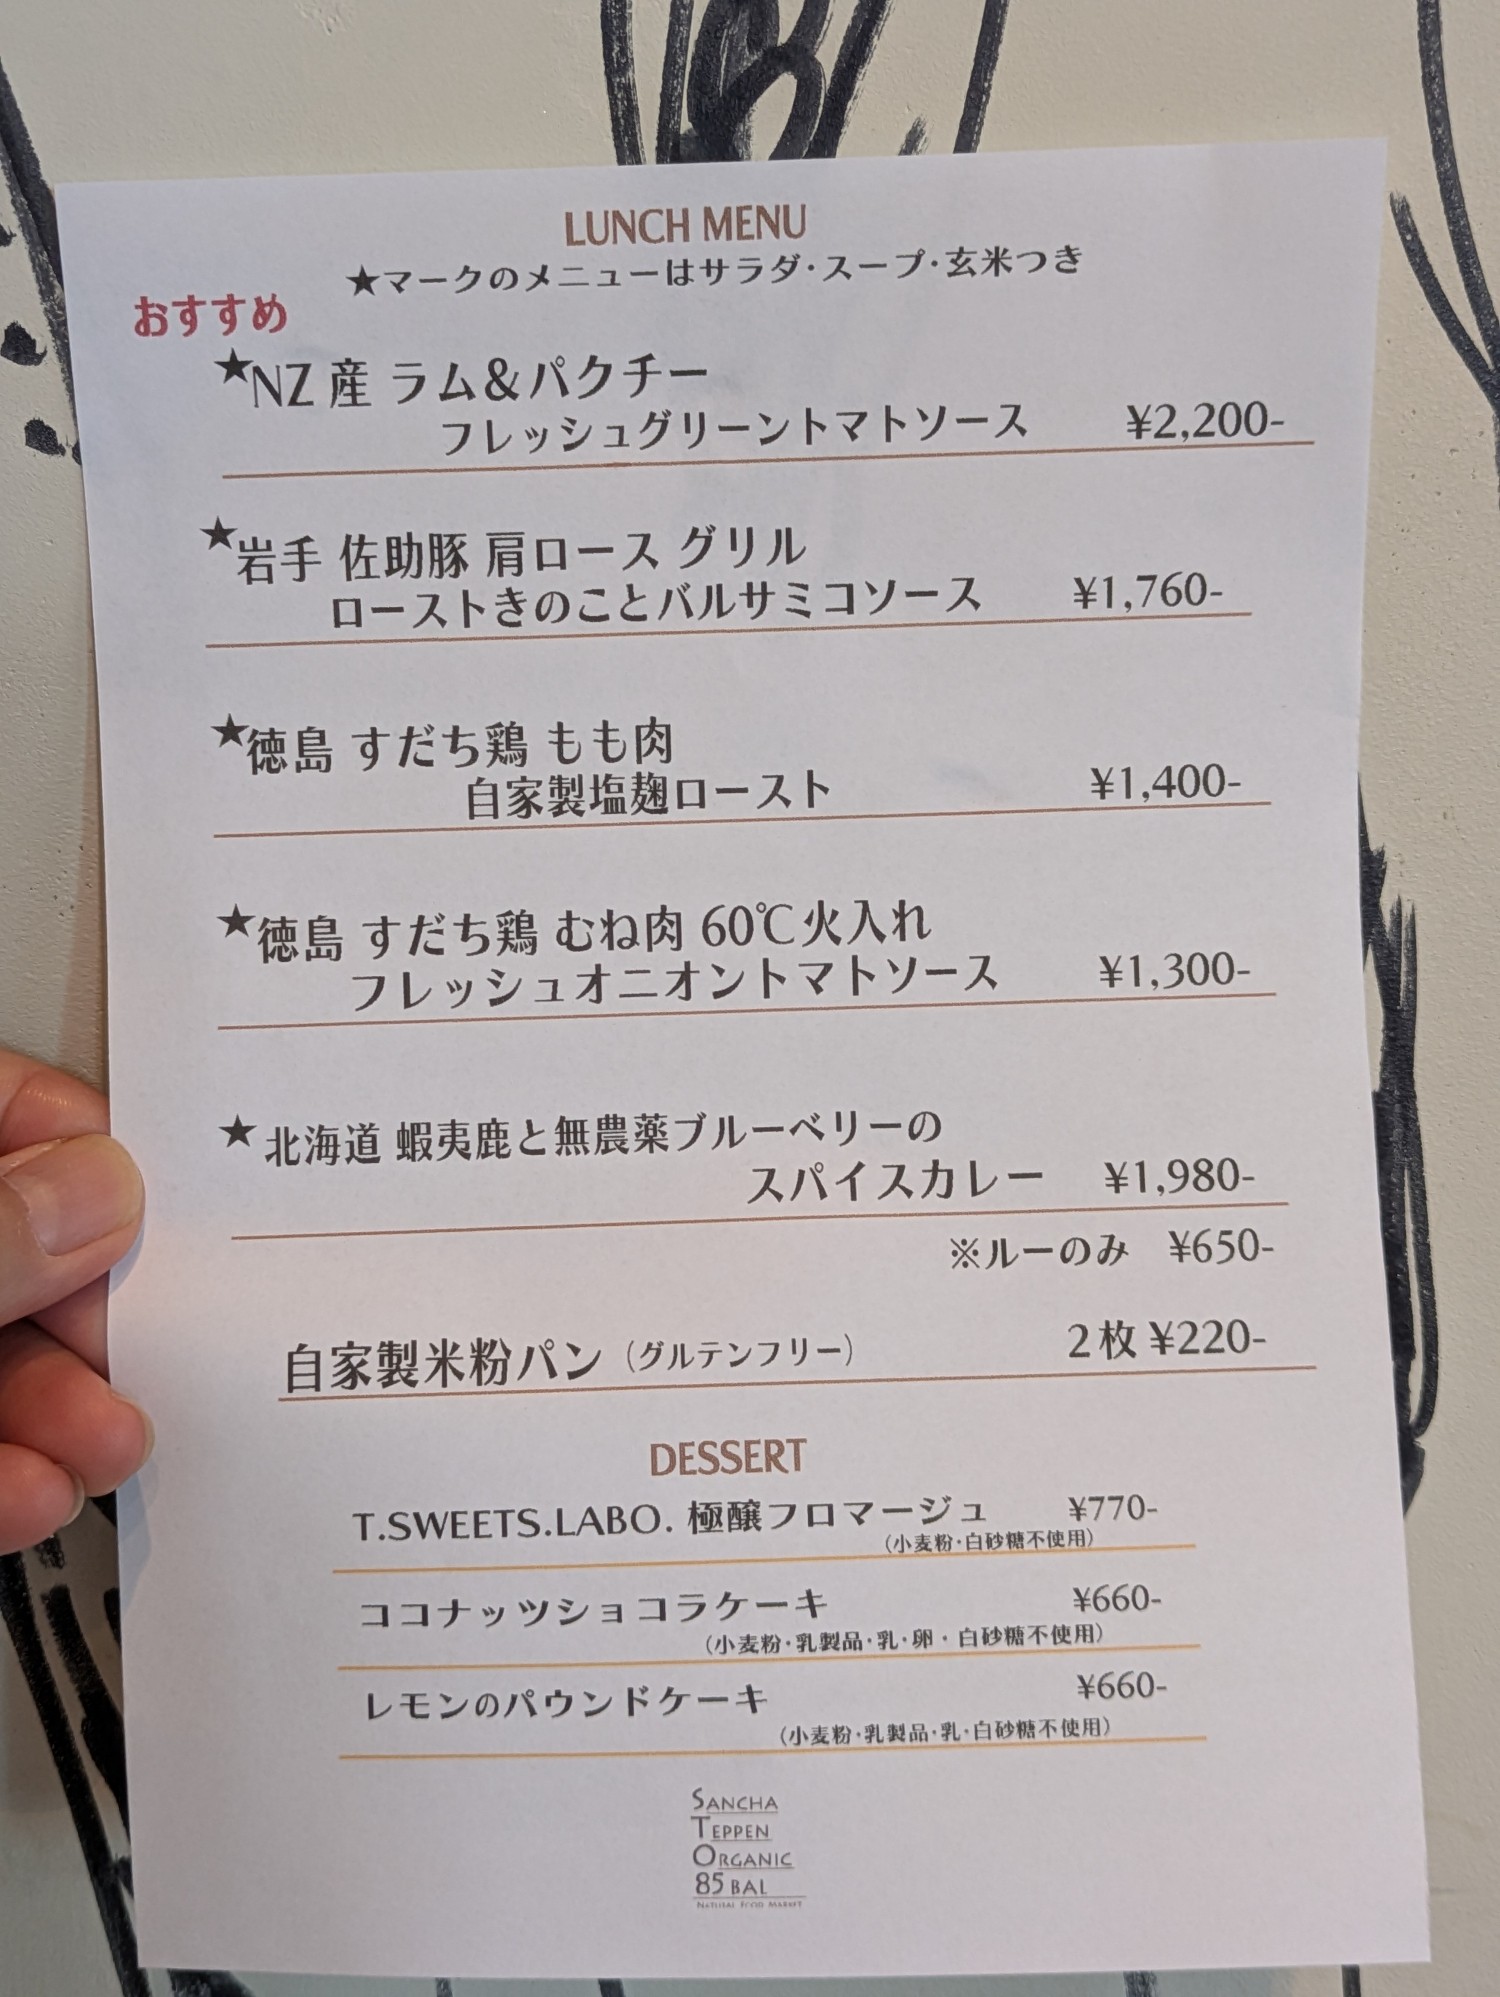 LUNCH MENU
★マークのメニューはサラダ・スープ・玄米つき
おすすめ
★NZ産 ラム&パクチー
フレッシュグリーントマトソース ¥2,200-
★岩手 佐助豚 肩ロース グリル
ローストきのことバルサミコソース ¥1,760-
★徳島 すだち鶏 もも肉
自家製塩麹ロースト ¥1,400-
★徳島 すだち鶏 むね肉 60℃火入れ
フレッシュオニオントマトソース ¥1,300-
★北海道 蝦夷鹿と無農薬ブルーベリーの
スパイスカレー ¥1,980-
※ルーのみ ¥650-
自家製米粉パン（グルテンフリー） 2枚 ¥220-
DESSERT
T.SWEETS.LABO. 極醸フロマージュ ¥770-
（小麦粉・白砂糖不使用）
ココナッツショコラケーキ ¥660-
（小麦粉・乳製品・乳・卵・白砂糖不使用）
レモンのパウンドケーキ ¥660-
（小麦粉・乳製品・乳・白砂糖不使用）
SANCHA
TEPPEN
ORGANIC
85 BAL
NATURAL FOOD MARKET